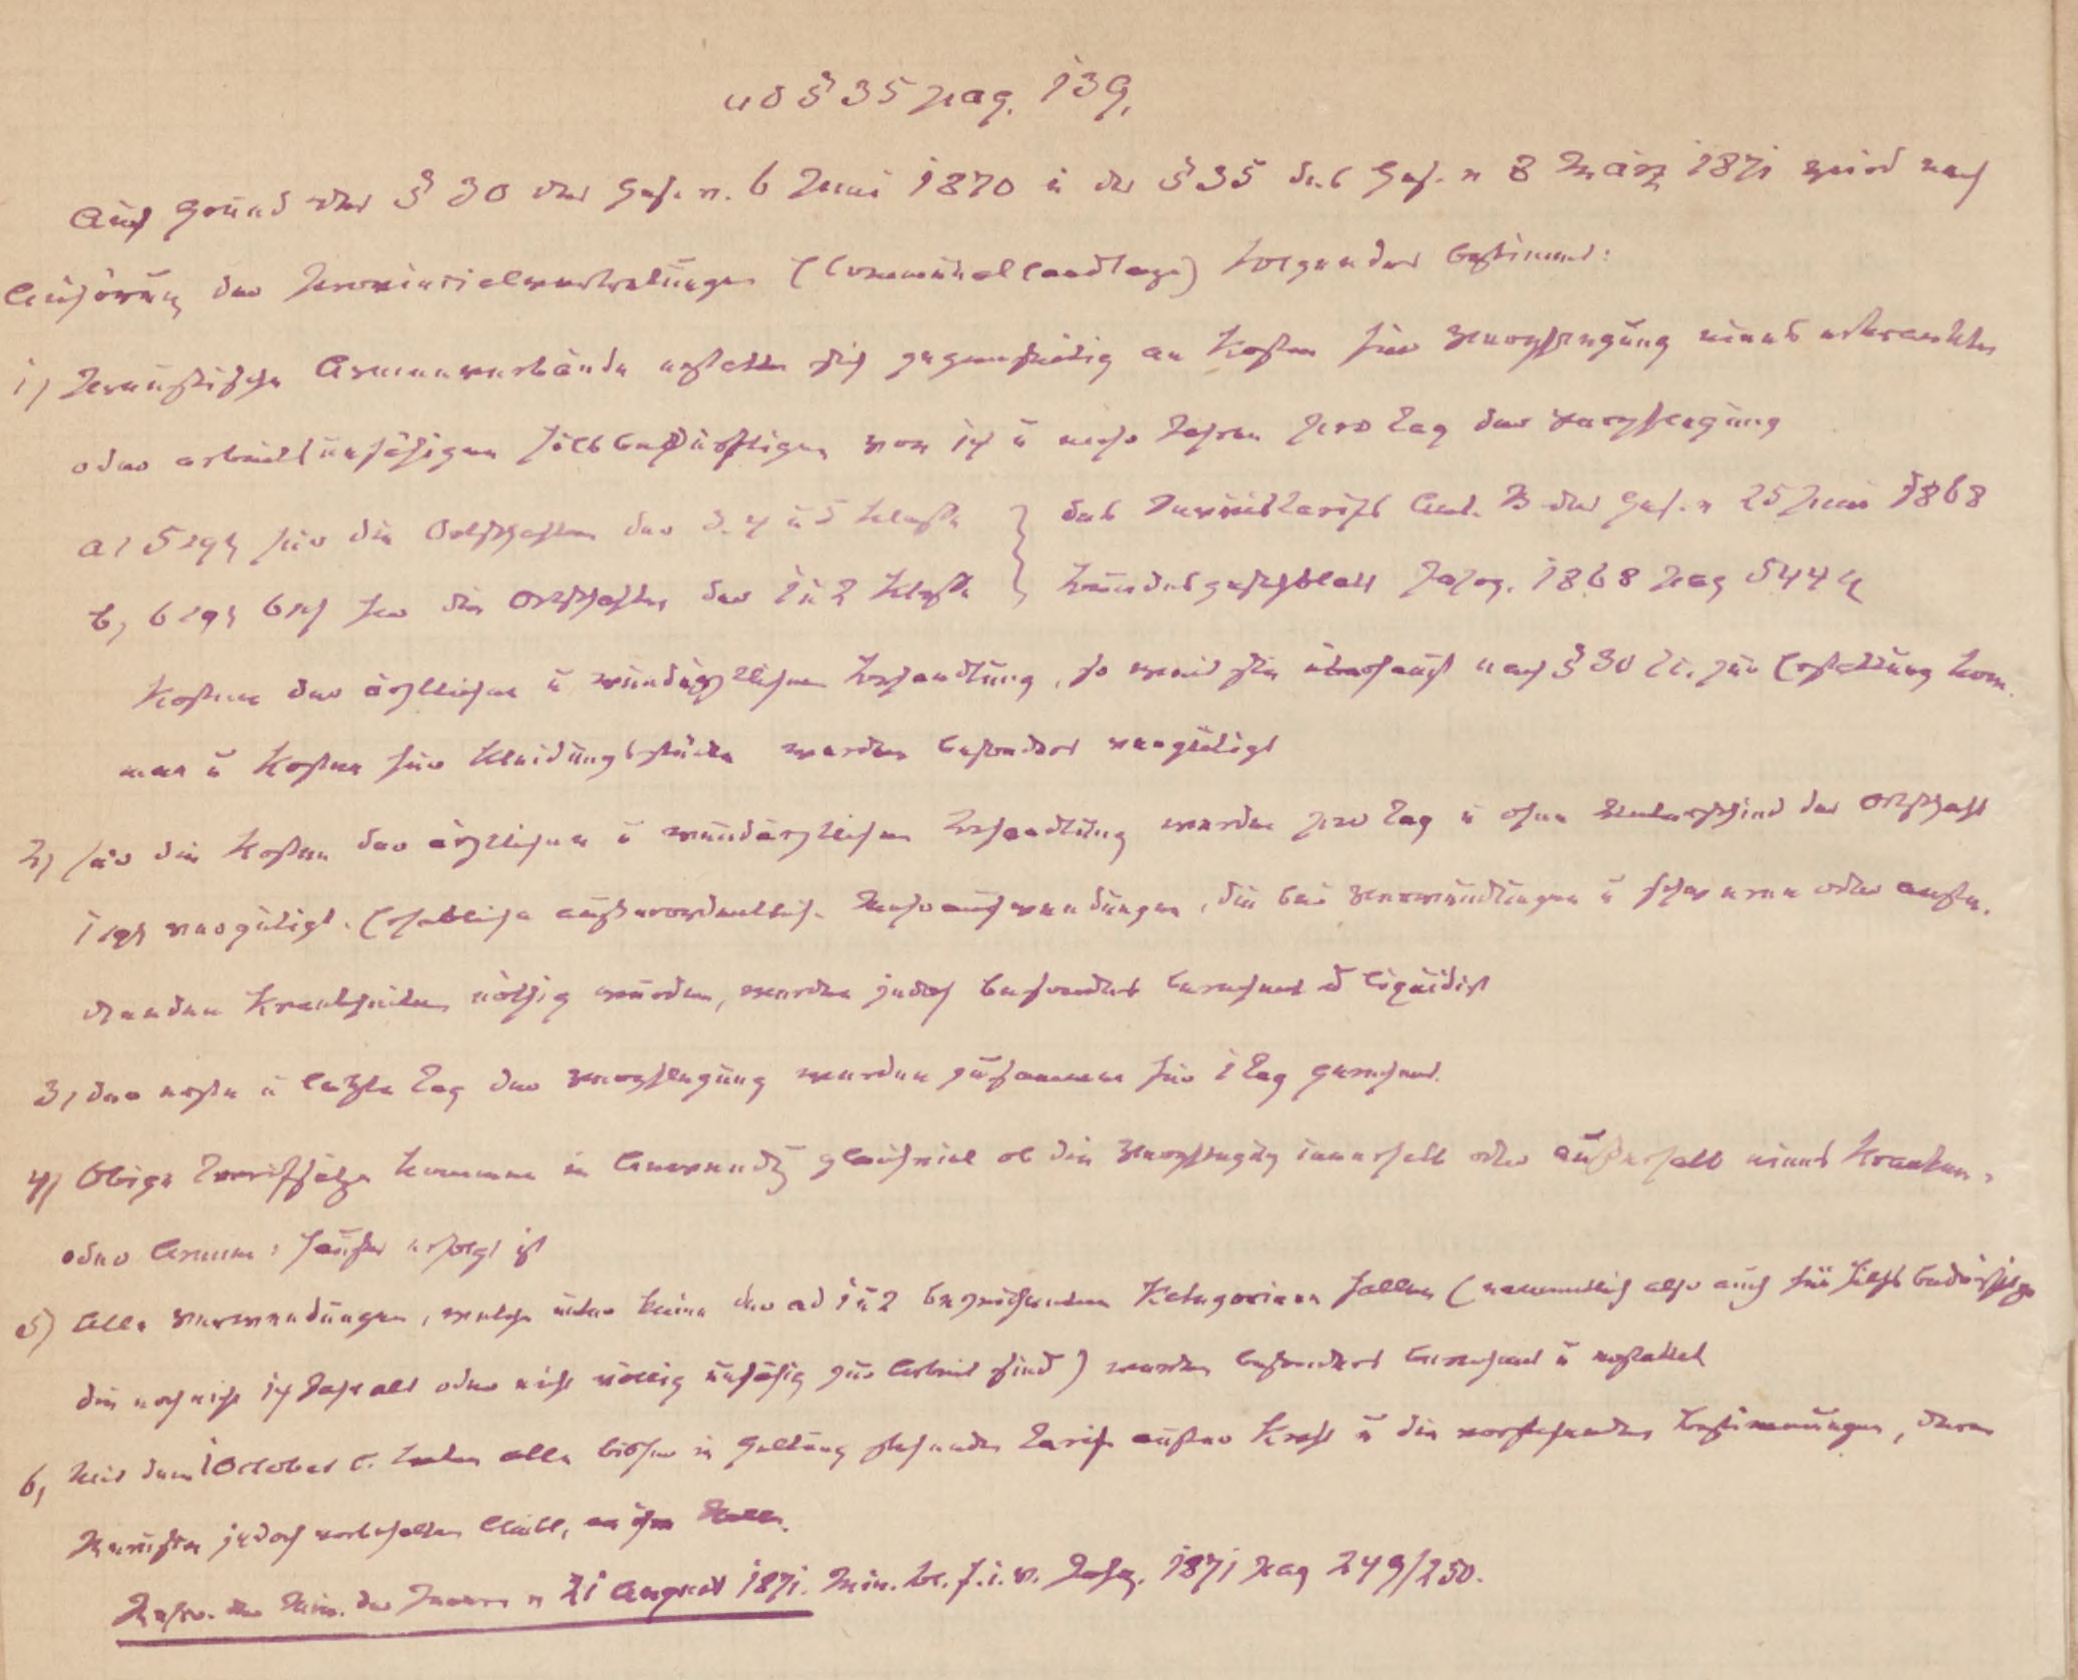 ad § 35 pag. 139.
Auf Grund des § 30 des Ges. v. 6 Juni 1870 u des § 35 des Ges. v 8 März 1871 wird nach
Anhörung der Provincialvertretungen (Communallandtage) folgendes bestimmt:
1) Preußische Armenverbände erstatten sich gegenseitig an Kosten für Verpflegung eines erkrankten
oder arbeitsunfähigen Hilfsbedürftigen von 14 u mehr Jahren pro Tag der Verpflegung
a) 5 sgr für die Ortschaften der 3. 4 u 5 Klasse } des Servistarifs Anl. B des Ges. v 25 Juni 1868
b, 6 sgr 6 pf für die Ortschaften der 1 u 2 Klasse } Bundesgesetzblatt Jahrg. 1868 pag 544
Kosten der ärztlichen u wundärztlichen Behandlung, so weit sie überhaupt nach § 30 zur Erstattung kom-
men u Kosten für Kleidungsstücke werden besonders vergütigt
2) für die Kosten der ärztlichen u wundärztlichen Behandlung werden pro Tag u ohne Unterschied der Ortschaft
1 sgr vergütigt. Erhebliche außerordentlich. Mehraufwendungen, die bei Verwundungen u schweren oder anste-
ckenden Krankheiten nöthig wurden, werden jedoch besonders berechnet u liquidirt
3, der erste u letzte Tag der Verpflegung werden zusammen für 1 Tag gerechnet.
4) Obige Tarifsätze kommen in Anwendg gleichviel ob die Verpflegung innerhalb oder außerhalb eines Kranken-
oder Armen: hauses erfolgt ist
5) Alle Verwendungen, welche unter keine der ad 1 u 2 bezeichneten Kategorieen fallen (namentlich also auch für Hilfsbedürftige
die noch nicht 14 Jahr alt oder nicht völlig unfähig zur Arbeit sind) werden besonders berechnet u erstattet
6, Mit dem 1 October c. treten alle bisher in Geltung stehenden Tarife außer Kraft u die vorstehenden Bestimmungen, deren
Revision jedoch vorbehalten bleibt, an ihre Stelle.
Rescr. des Min. des Innern v 21 August 1871. Min. Bl. f. i. V. Jahrg. 1871 pag 249/250.